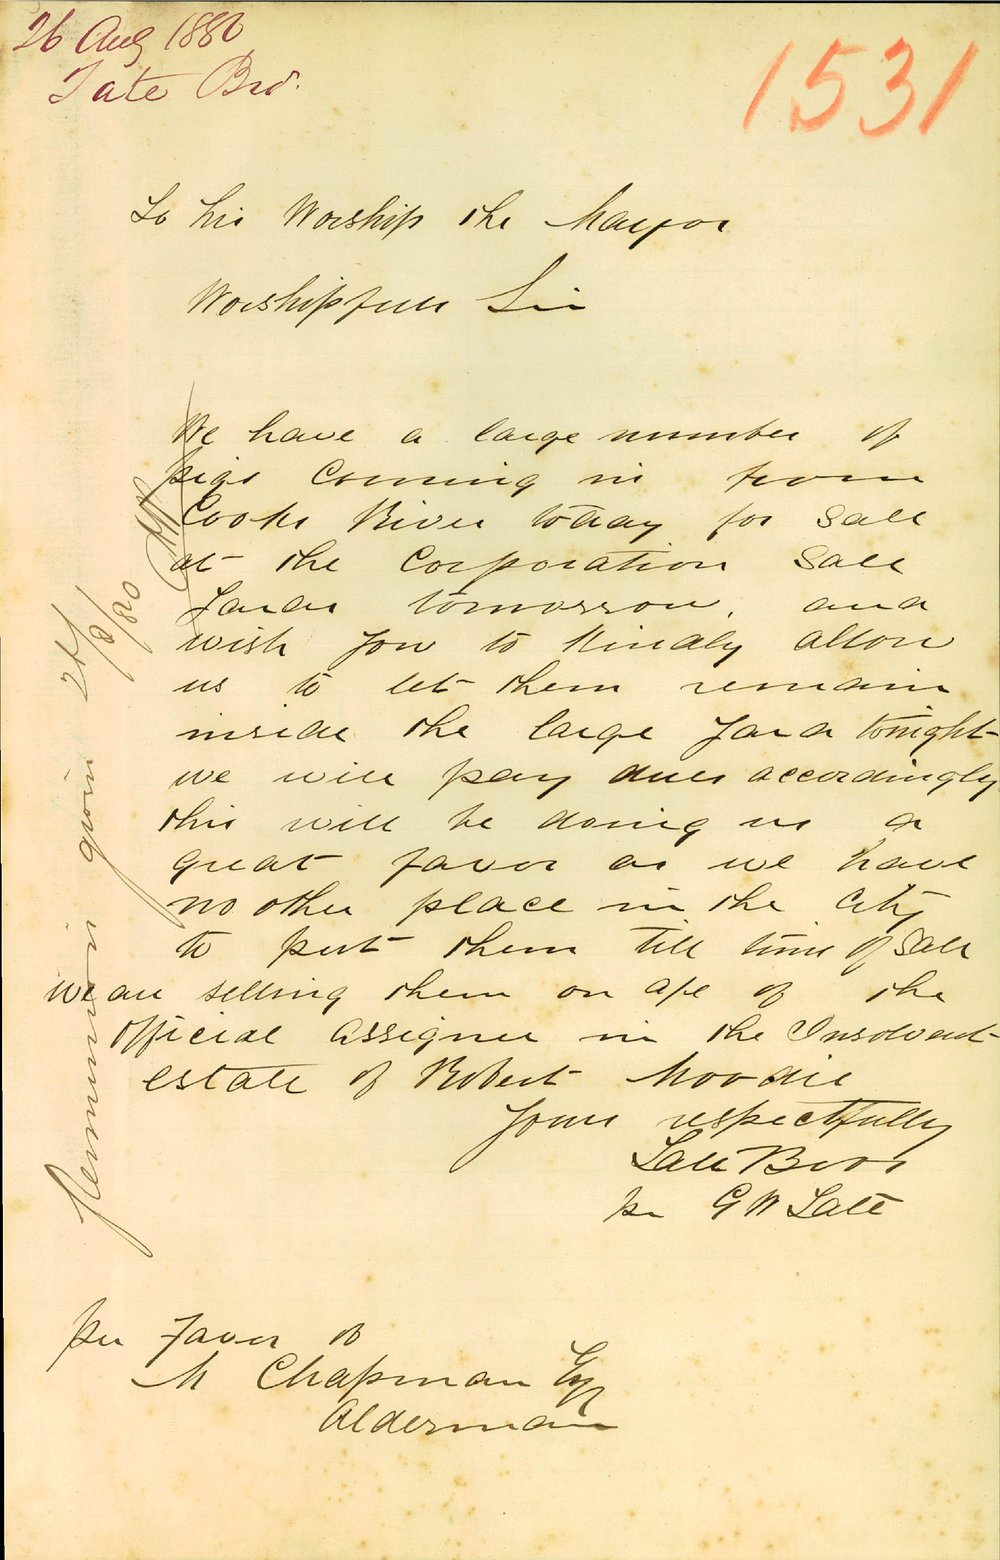 26 Aug 1880
Tate Bro.
1531
To his Worship the Mayor
Worshipfull Sir
We have a large number of
pigs Comming in from
Cooks River today for Sale
at the Corporation Sale
Yards tomorrow. and
wish you to Kindly allow
us to let them remain
inside the large Yard tonight
we will pay dues accordingly
this will be doing us a
great favor as we have
no other place in the City
to put them till time of Sale
we are selling them on a/c of the
Official Assignee in the Insolvent
estate of Robert Moodie
Yours respectfully
Tate Bros
per G W Tate
per Favor to
M Chapman Esq
Alderman
Permission given 27/8/80